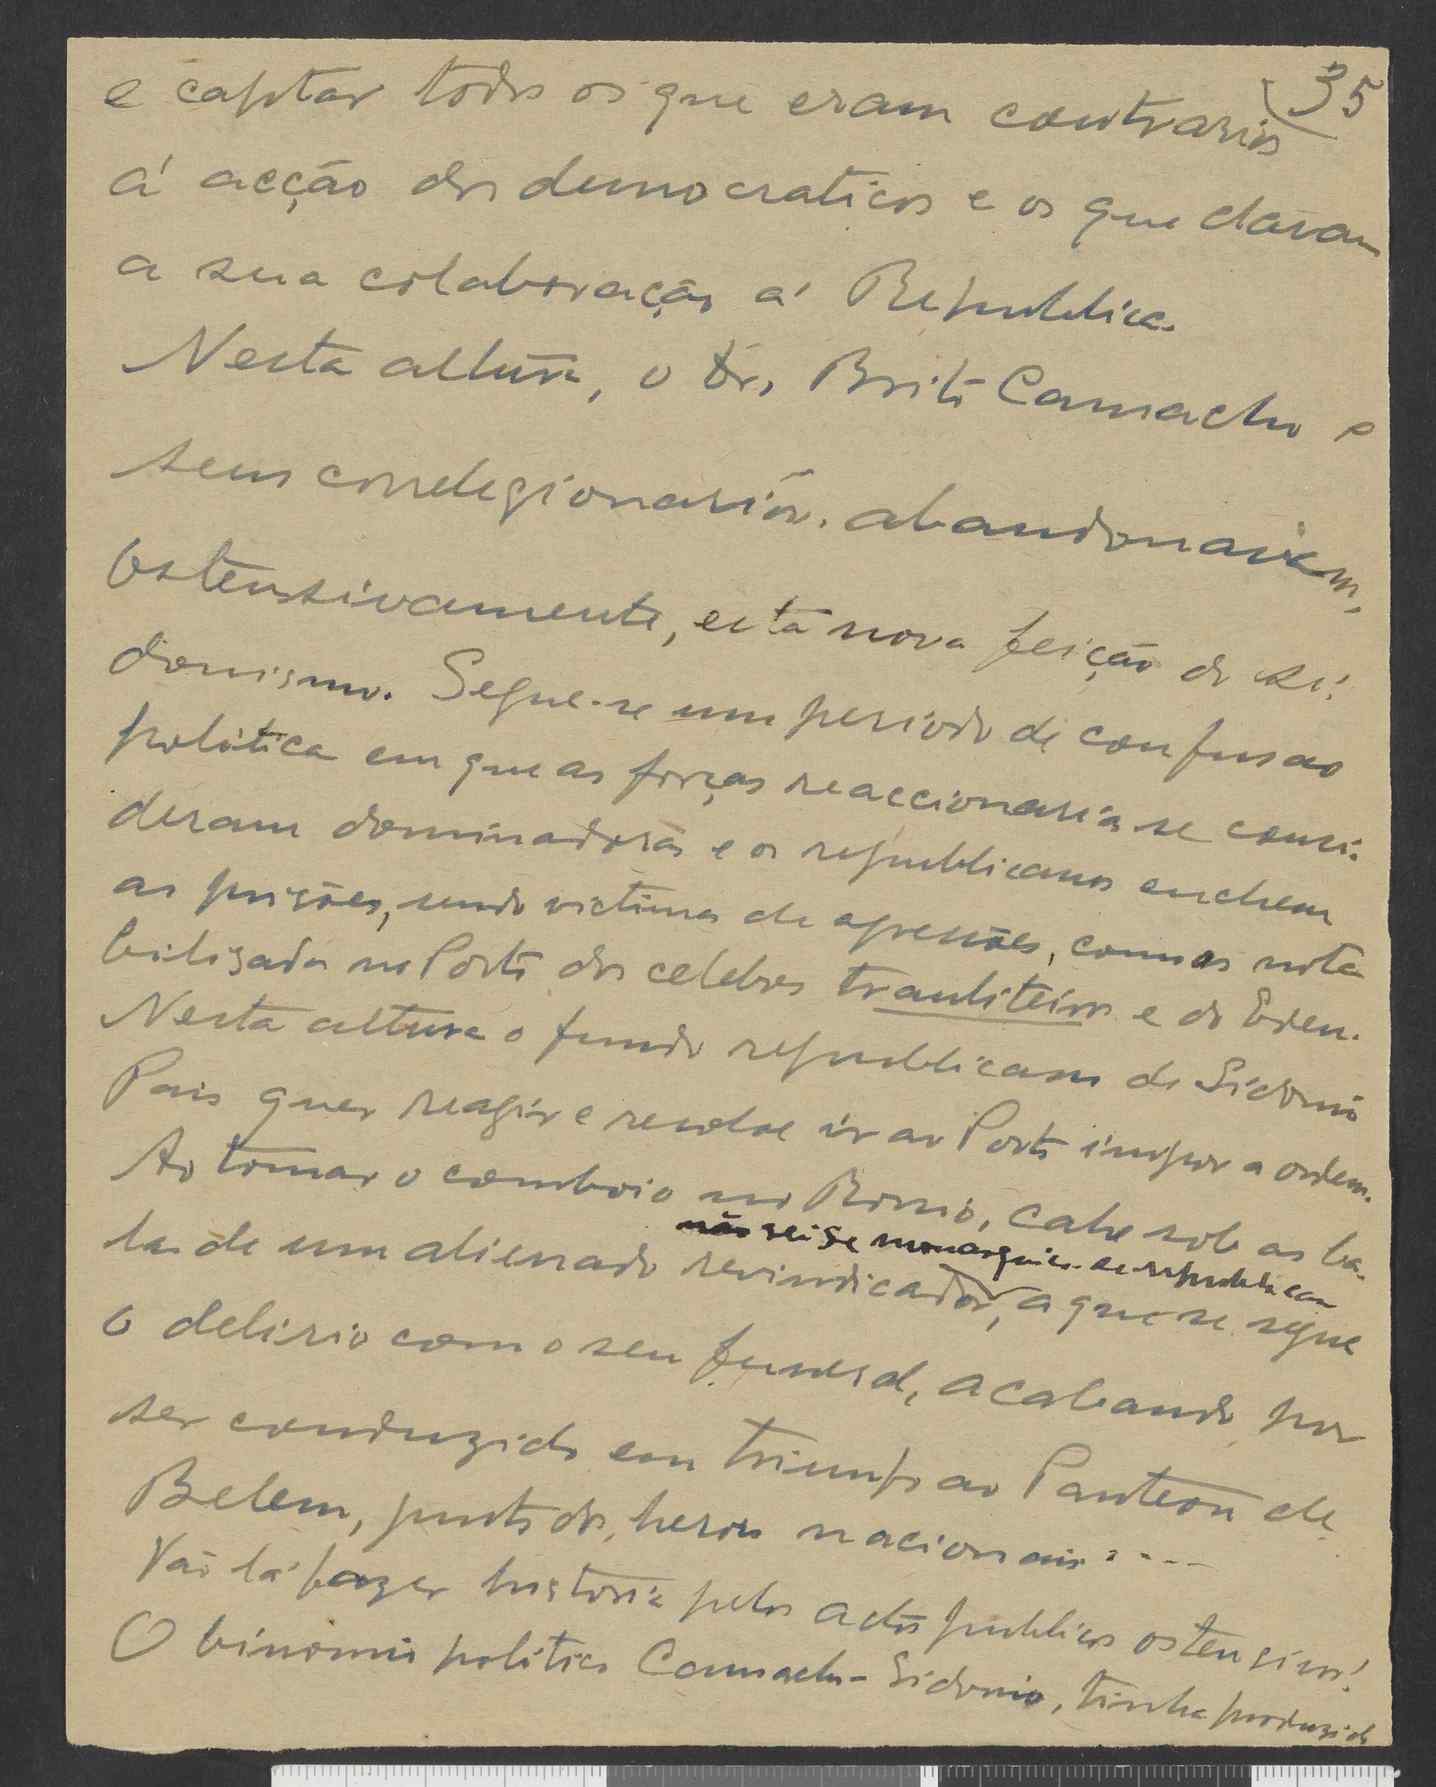 35
e captar todos os que eram contrarios
á acção dos democraticos e os que davam
a sua colaboração á Republica.
Nesta altura, o Dr. Brito Camacho e
seus correlegionarios, abandonavam,
ostensivamente, esta nova feição do si-
donismo. Segue-se um periodo de confusão
politica em que as forças reaccionarias se consi-
deram dominadoras e os republicanos enchem
as prisões, sendo victimas de agressões, como as nota
bilizadas no Porto dos celebres trauliteiros e do Eden.
Nesta altura o fundo republicano de Sidonio
Pais quer reagir e resolve ir ao Porto impor a ordem.
Ao tomar o comboio no Rossio, cahe sob as ba-
não sei se monarquico ou republicano
las de um alienado revindicador, a que se segue
o delirio com o seu funeral, acabando por
ser conduzido em triunfo ao Panteon de
Belem, junto dos herois nacionais....
Vão lá fazer historia pelos actos publicos ostensivos!
O binomio politico Camacho-Sidonio, tinha produzido